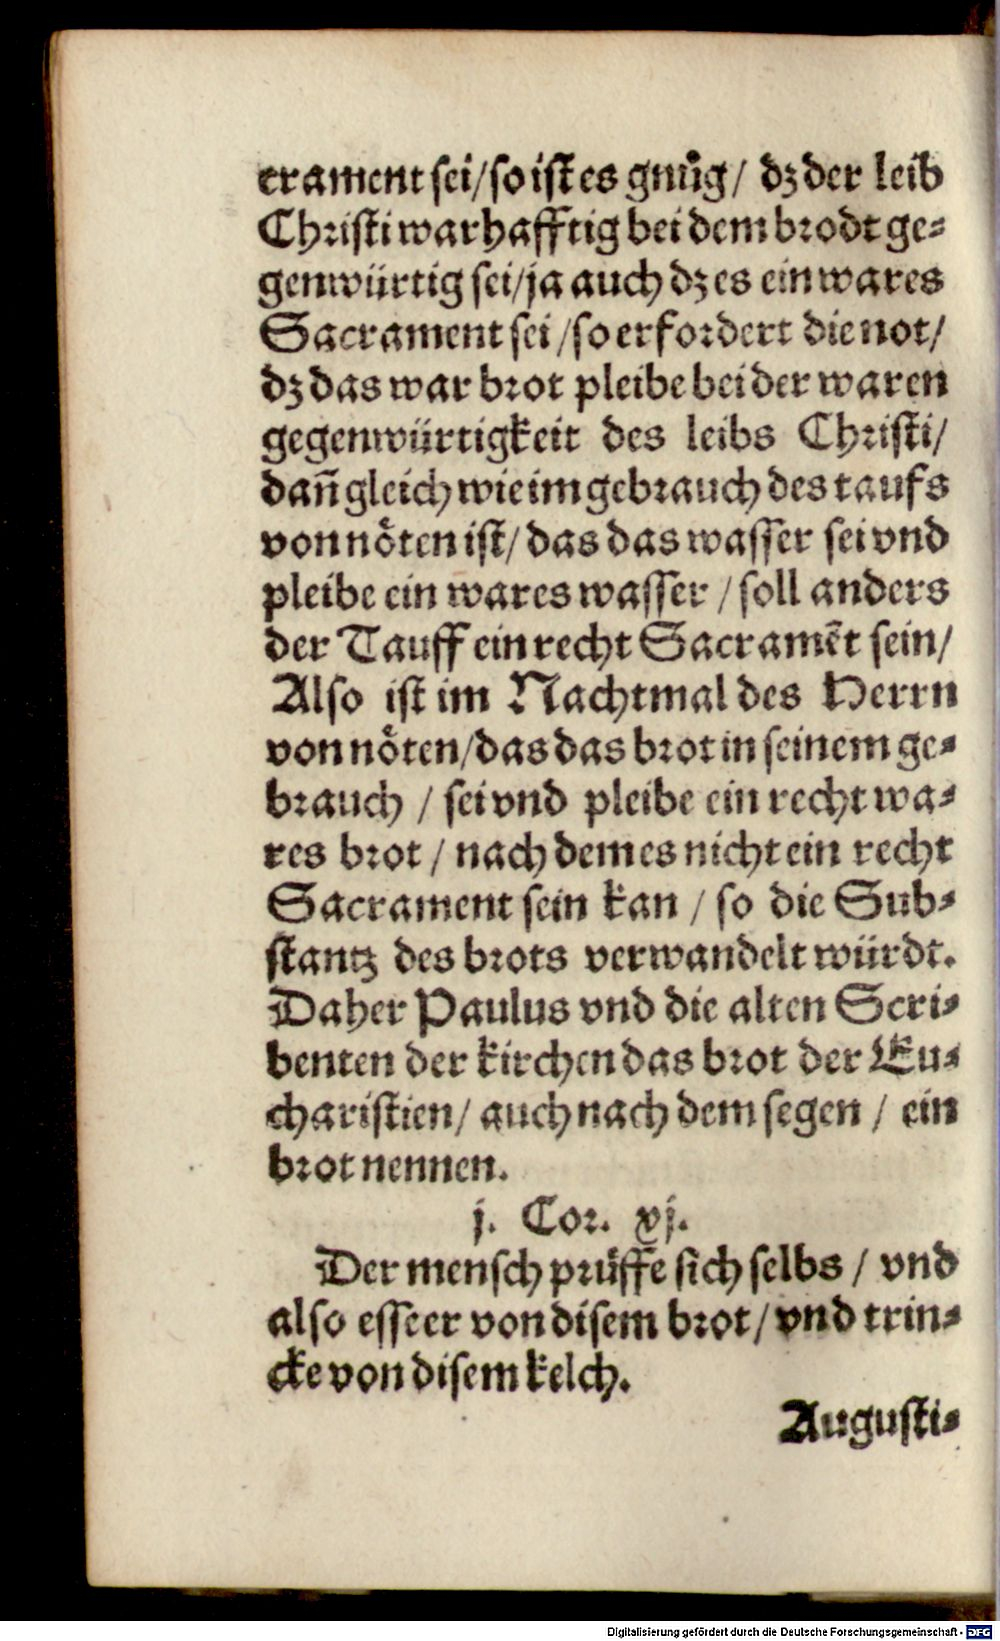 crament sei/so ist es gnůg/ dz der leib
Christi warhafftig bei dem brodt ge⸗
genwürtig sei/ja auch dz es ein wares
Sacrament sei /so erfordert die not/
dz das war brot pleibe bei der waren
gegenwürtigkeit des leibs Christi/
dañ gleich wie im gebrauch des taufs
von nöten ist/ das das wasser sei vnd
pleibe ein wares wasser / soll anders
der Tauff ein recht Sacramēt sein/
Also ist im Nachtmal des Herrn
von nöten/das das brot in seinem ge⸗
brauch / sei vnd pleibe ein recht wa⸗
res brot / nach dem es nicht ein recht
Sacrament sein kan / so die Sub⸗
stantz des brots verwandelt würdt.
Daher Paulus vnd die alten Scri⸗
benten der kirchen das brot der Eu⸗
charistien/ auch nach dem segen / ein
brot nennen.
j. Cor. xj.
Der mensch prüffe sich selbs / vnd
also esse er von disem brot/ vnd trin⸗
cke von disem kelch.
Augusti⸗
Digitalisierung gefördert durch die Deutsche Forschungsgemeinschaft - DFG